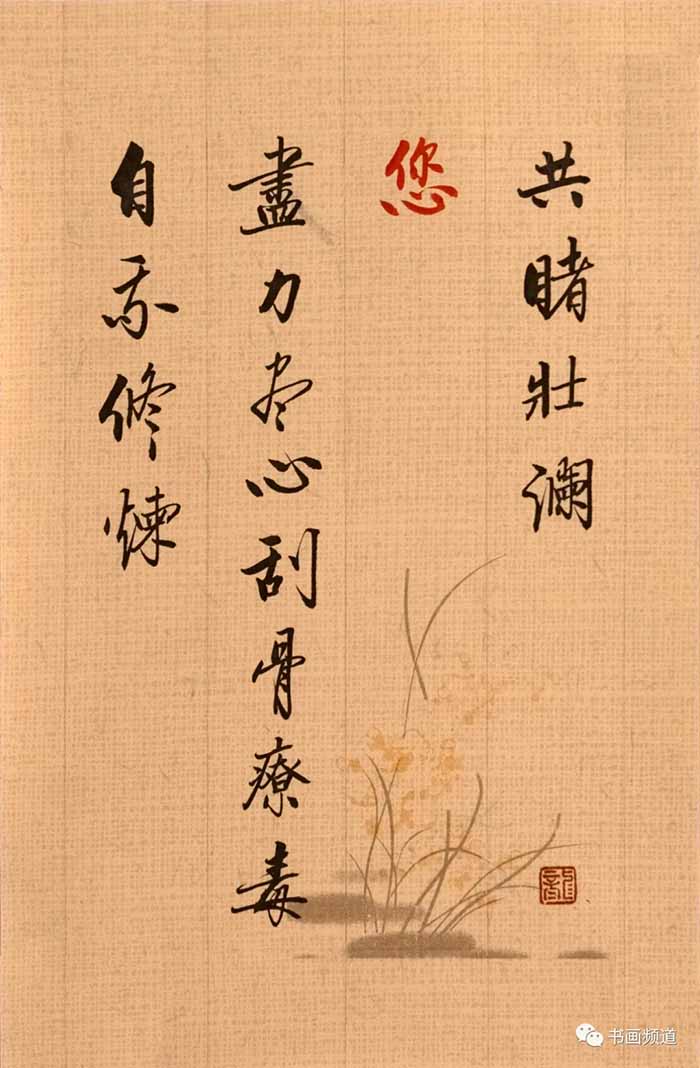 共睹壮瀾
您
盡力尽心刮骨療毒
自我修煉
龍
书画频道